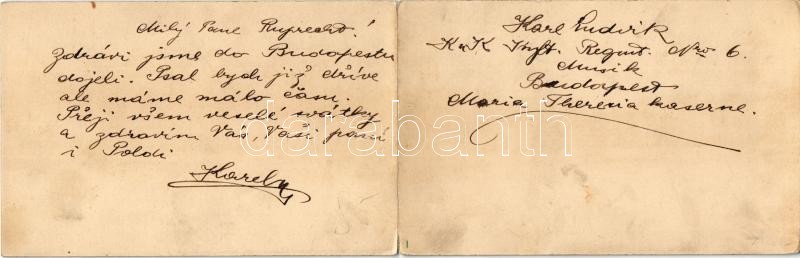 Milý Pane Ruprecht!
Zdrávi jsme do Budapestu
dojeli. Psal bych již dříve
ale máme málo času.
Přeji všem veselé svátky
a zdravím Vás, Vaši paní
i Poldi
Karel
Karl Ludvik
K u K Inft. Regmt. Nro 6.
Musik
Budapest
Maria Theresia kaserne.
darabanth